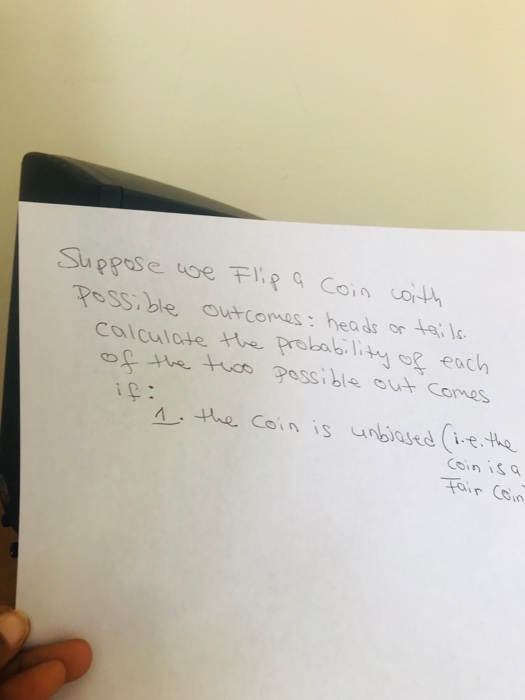 Suppose we Flip a Coin with
possible outcomes: heads or tails.
calculate the probability of each
of the two possible out comes
if:
1. the coin is unbiased (i.e. the
coin is a
Fair Coin